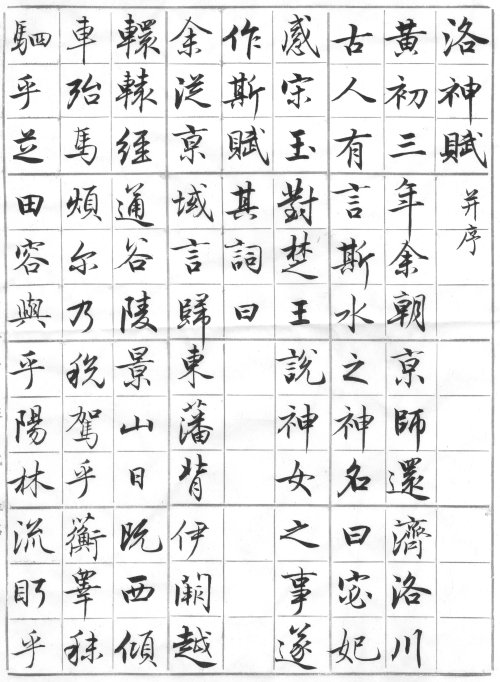 洛神賦 并序
黃初三年余朝京師還濟洛川
古人有言斯水之神名曰宓妃
感宋玉對楚王說神女之事遂
作斯賦其詞曰
余從京域言歸東藩背伊闕越
轘轅經通谷陵景山日既西傾
車殆馬煩尔乃稅駕乎蘅皋秣
駟乎芝田容與乎陽林流眄乎